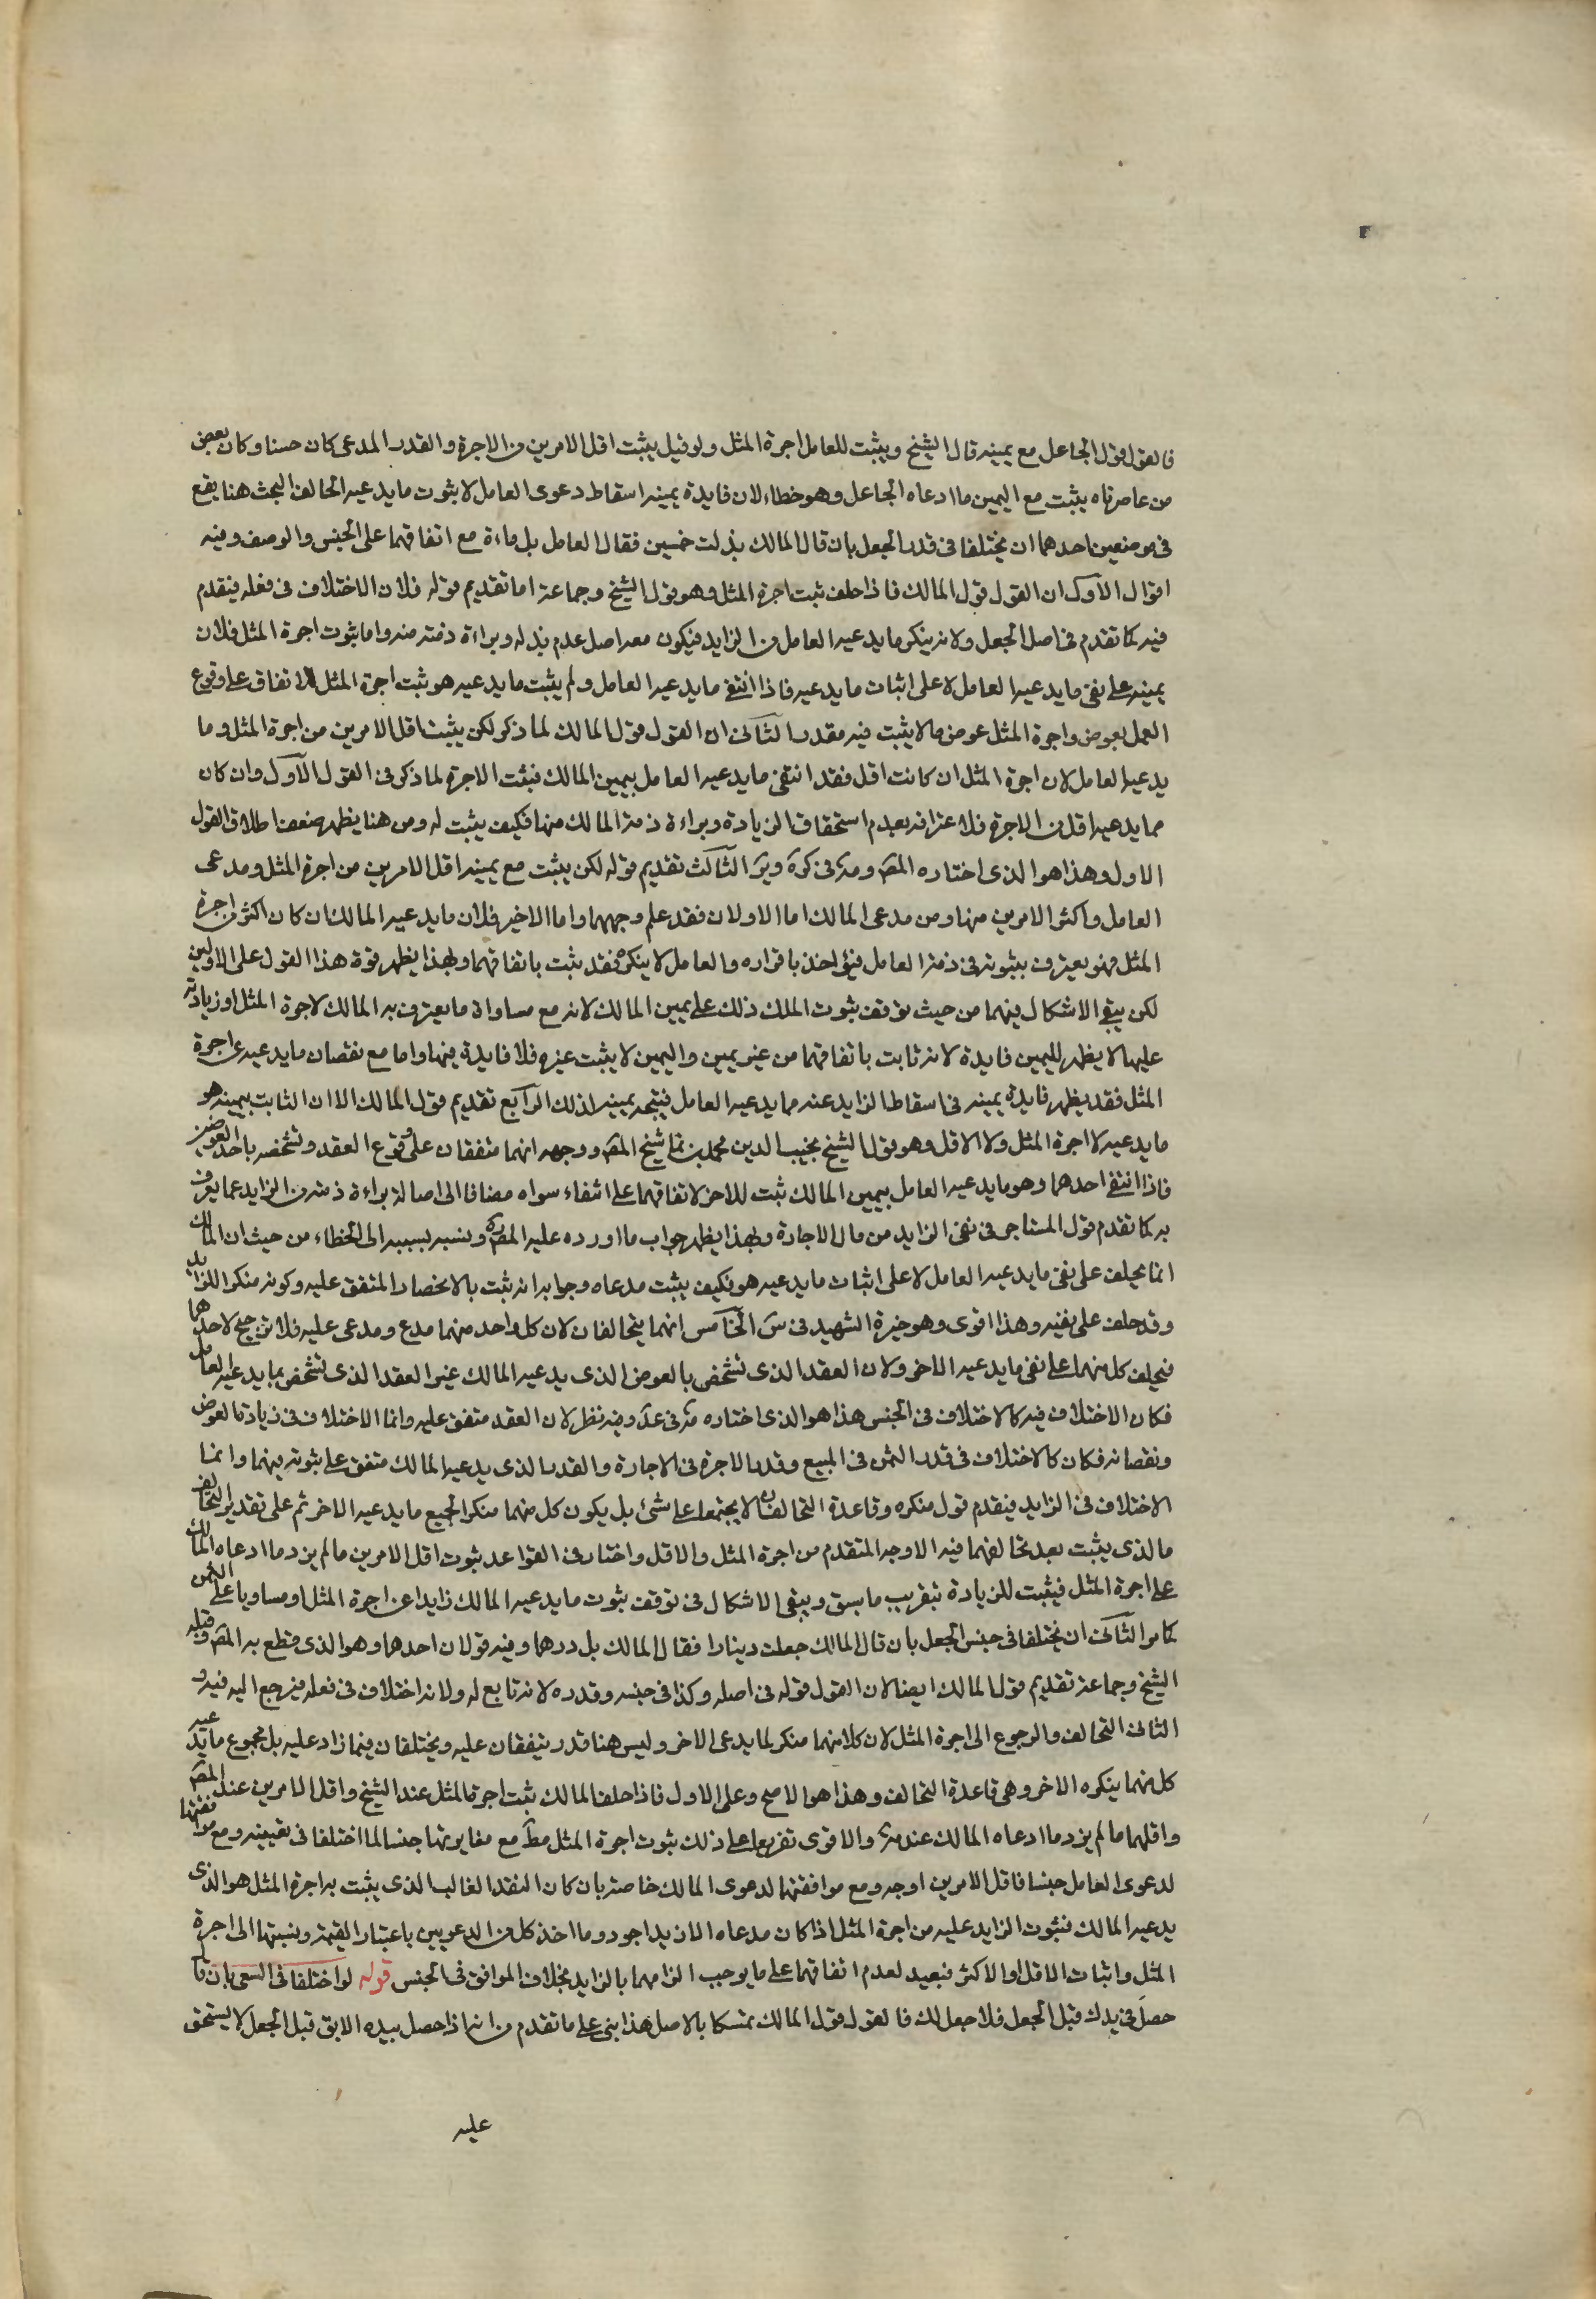 فالقول قول الجاعل مع يمينه قال الشيخ ويثبت للعامل اجرة المثل ولو قيل يثبت اقل الامرين من الاجرة والقدر المدعى كان حسنا وكان بعض
من عاصرناه يثبت مع اليمين ما ادعاه الجاعل وهو خطاء لان فايدة يمينه اسقاط دعوى العامل لا ثبوت ما يدعيه الحالف البحث هنا يقع
فى موضعين احدهما ان يختلفا فى قدر الجعل بان قال المالك بذلت خمسين فقال العامل بل ماءة مع اتفاقهما على الجنس والوصف وفيه
اقوال الاول ان القول قول المالك فاذا حلف ثبت اجرة المثل وهو قول الشيخ وجماعة اما تقديم قوله فلان الاختلاف فى فعله فيقدم
فيه كما تقدم فى اصل الجعل ولانه ينكر ما يدعيه العامل من الزايد فيكون معه اصل عدم بذله وبراءة ذمته منه واما ثبوت اجرة المثل فلان
يمينه على نفى ما يدعيه العامل لا على اثبات ما يدعيه فاذا انتفى ما يدعيه العامل ولم يثبت ما يدعيه هو ثبت اجرة المثل للاتفاق على وقوع
العمل بعوض واجرة المثل عوض ما لا يثبت فيه مقدر الثانى ان القول قول المالك لما ذكر لكن يثبت اقل الامرين من اجرة المثل وما
يدعيه العامل لان اجرة المثل ان كانت اقل فقد انتفى ما يدعيه العامل بيمين المالك فيثبت الاجرة لما ذكر فى القول الاول وان كان
مما يدعيه اقل من الاجرة فلاعترافه بعدم استحقاق الزيادة وبراءة ذمة المالك منها فكيف يثبت له ومن هنا يظهر ضعف اطلاق القول
الاول وهذا هو الذى اختاره المصَ ومَة فى كرَة ويَر الثالث تقديم قوله لكن يثبت مع يمينه اقل الامرين من اجرة المثل ومدعى
العامل واكثر الامرين منها ومن مدعى المالك اما الاولان فقد علم وجههما واما الاخير فلان ما يدعيه المالك ان كان اكثر من اجرة
المثل فهو يعترف بثبوته فى ذمته العامل فيؤاخذ باقراره والعامل لا ينكره فقد ثبت باتفاقهما وبهذا يظهر قوة هذا القول على الاولين
لكن يبقى الاشكال فيهما من حيث توقف ثبوت الملك ذلك على يمين المالك لانه مع مساواة ما يعترف به المالك لاجرة المثل او زيادته
عليها لا يظهر لليمين فايدة لانه ثابت باتفاقهما من غير يمين واليمين لا يثبت غيره فلا فايدة فيها واما مع نقصان ما يدعيه عن اجرة
المثل فقد يظهر فايدة يمينه فى اسقاط الزايد عنه مما يدعيه العامل فيتجه يمينه لذلك الرابع تقديم قول المالك الا ان الثابت بيمينه هو
ما يدعيه لا اجرة المثل ولا الاقل وهو قول الشيخ نجيب الدين محمد بن نما شيخ المصَ ووجهه انهما متفقان على وقوع العقد وتشخصه باحد العوضين
فاذا انتفى احدهما وهو ما يدعيه العامل بيمين المالك ثبت للاخر لاتفاقهما على انتفاء سواه مضافا الى اصالة براءة ذمته من الزايد عما يعرف
به كما تقدم قول المستاجر فى نفى الزايد من مال الاجارة وبهذا يظهر جواب ما اورده عليه المصَ ره ونسبه بسببه الى الخطاء من حيث ان المالك
انما يحلف على نفى ما يدعيه العامل لا على اثبات ما يدعيه هو فكيف يثبت مدعاه وجوابه انه ثبت بالانحصار المتفق عليه وكونه منكرا للزايد
وقد حلف على نفيه وهذا اقوى وهو خيرة الشهيد فى سَ الخامس انهما يتحالفان لان كل واحد منهما مدع ومدعى عليه فلا ترجيح لاحدهما
فيحلف كل منهما على نفى ما يدعيه الاخر ولان العقد الذى تشخص بالعوض الذى يدعيه المالك غير العقد الذى تشخص بما يدعيه العامل
فكان الاختلاف فيه كالاختلاف فى الجنس هذا هو الذى اختاره مَة فى عدَ وفيه نظر لان العقد متفق عليه وانما الاختلاف فى زيادة العوض
ونقصانه فكان كالاختلاف فى قدر الثمن فى المبيع وقدر الاجرة فى الاجارة والقدر الذى يدعيه المالك متفق على ثبوته بينهما وانما
الاختلاف فى الزايد فيقدم قول منكره وقاعدة التحالف ان لا يجتمعا على شئ بل يكون كل منهما منكر الجميع ما يدعيه الاخر ثم على تقدير التحالف
ما الذى يثبت بعد تحالفهما فيه الاوجه المتقدم من اجرة المثل والاقل واختار فى القواعد ثبوت اقل الامرين ما لم يزد ما ادعاه المالك
على اجرة المثل فيثبت للزيادة بتقريب ما سبق ويبقى الاشكال فى توقف ثبوت ما يدعيه المالك زايدا عن اجرة المثل او مساويا على الثمن
كما مر الثانى ان يختلفا فى جنس الجعل بان قال المالك جعلت دينارا فقال المالك بل درهما وفيه قولان احدهما وهو الذى قطع به المصَ وقبله
الشيخ وجماعة تقديم قول المالك ايضا لان القول قوله فى اصله وكذا فى جنسه وقدره لانه تابع له ولانه اختلاف فى فعله فيرجع اليه فيه و
الثانى التحالف والرجوع الى اجرة المثل لان كلا منهما منكر لما يدعى الاخر وليس هنا قدر يتفقان عليه ويختلفان فيما زاد عليه بل مجموع ما يدعيه
كل منهما ينكره الاخر وهى قاعدة التحالف وهذا هو الاصح وعلى الاول فاذا حلف المالك ثبت اجرة المثل عند الشيخ واقل الامرين عند المصَ
واقلهما ما لم يزد ما ادعاه المالك عند مَة والاقوى تفريعا على ذلك ثبوت اجرة المثل مطَ مع مغايرتها جنسا لما اختلفا فى تعيينه ومع موافقتها
لدعوى العامل جنسا فاقل الامرين اوجه ومع موافقتها لدعوى المالك خاصة بان كان النقد الغالب الذى يثبت به اجرة المثل هو الذى
يدعيه المالك فثبوت الزايد عليه من اجرة المثل اذا كان مدعاه الازيد اجود وما اخذ كل من الدعويين باعتبار القيمة ونسبتها الى اجرة
المثل واثبات الاقل او الاكثر فبعيد لعدم اتفاقهما على ما يوجب الزامهما بالزايد بخلاف الموافق فى الجنس قوله لو اختلفا فى السعى بان قا
حصل فى يدك قبل الجعل فلا جعل لك فالقول قول المالك تمسكا بالاصل هذا بنى على ما تقدم من انه اذا حصل بيده الابق قبل الجعل لا يستحق
عليه